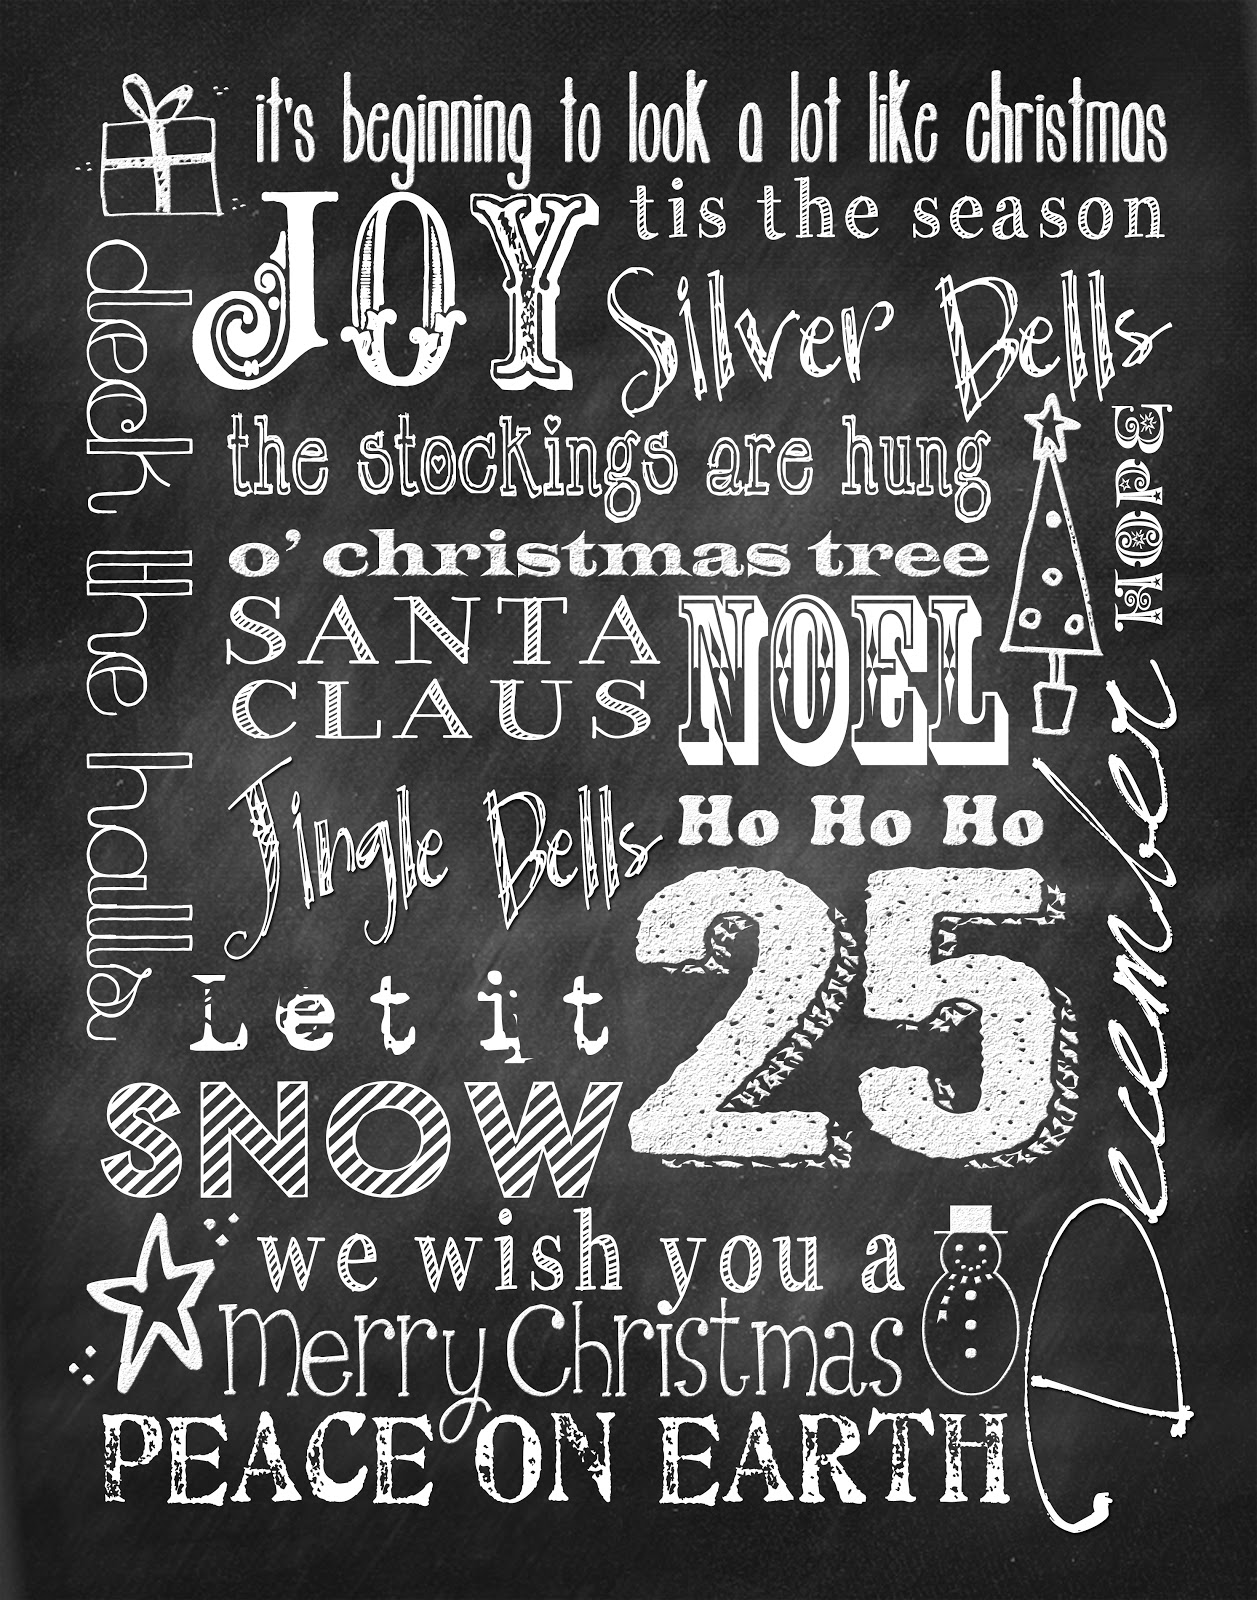 it's beginning to look a lot like christmas
JOY
tis the season
Silver Bells
deck the halls
the stockings are hung
Hope
o' christmas tree
SANTA
CLAUS
NOEL
Jingle Bells
Ho Ho Ho
25
December
Let it
SNOW
we wish you a
Merry Christmas
PEACE ON EARTH